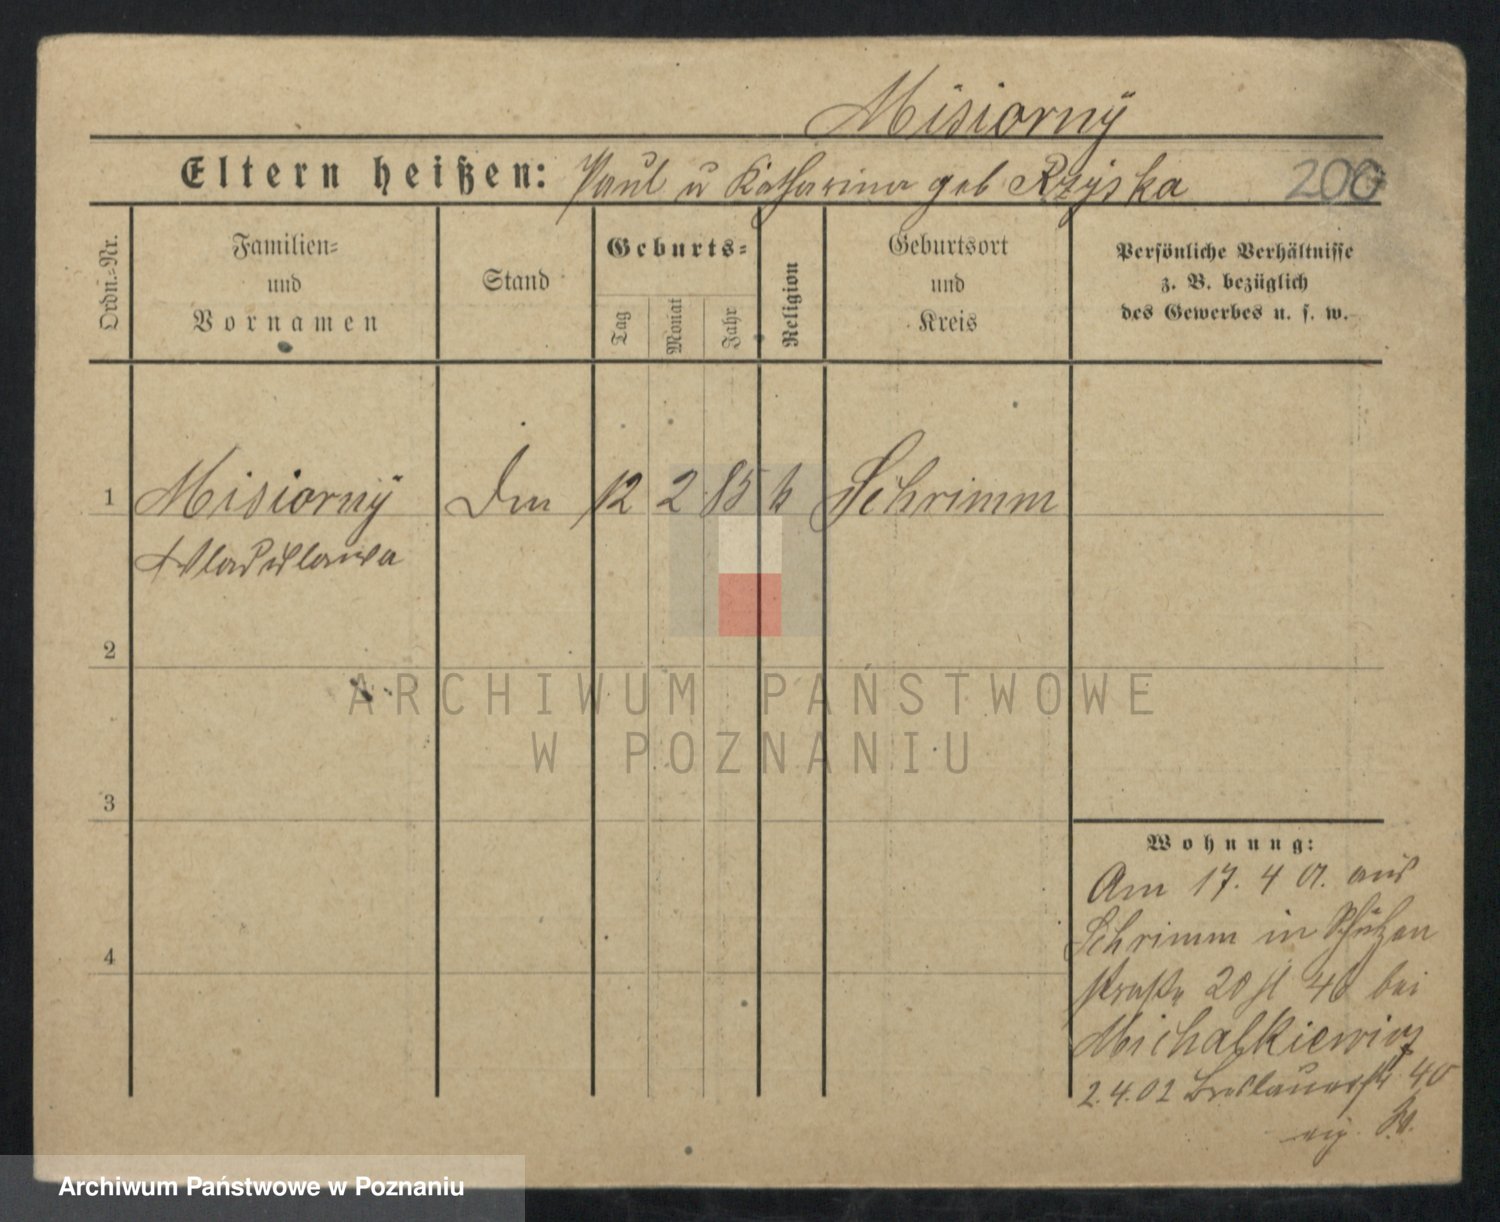 Misiorný
Eltern heißen: Paul u Katharina geb Rzyska 200
Ordn.=Nr.
Familien=
und
Vornamen
Stand
Geburts=
Tag
Monat
Jahr
Religion
Geburtsort
und
Kreis
Persönliche Verhältnisse
z. B. bezüglich
des Gewerbes u. s. w.
1 Misiorný 12 2 85 k Schrimm
Wladislawa
2
3
4
Wohnung:
Am 17. 4 01. aus
Schrimm in Schützen
straße 20 bei
Michalkiewicz
2.4.02 Breslauerstr 40
ARCHIWUM PAŃSTWOWE
W POZNANIU
Archiwum Państwowe w Poznaniu